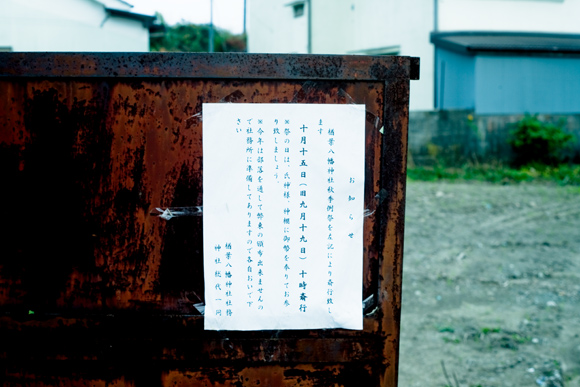 お知らせ
楢葉八幡神社秋季例祭を左記により斎行致し
ます
十月十五日(旧九月十九日) 十時斎行
※祭の日は、氏神様、神棚に御幣を奉りてお参
り致しましょう。
※今年は部落を通して幣束の頒布出来ませんの
で社務所に準備してありますので各自おいで下
さい
楢葉八幡神社社務
神社総代一同